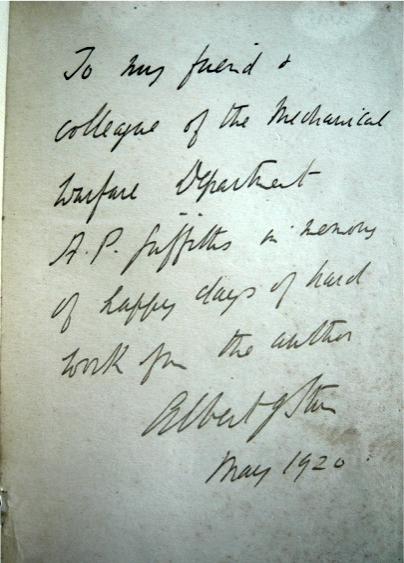 To my friend &
colleague of the Mechanical
Warfare Department
A. P. Griffiths in memory
of happy days of hard
work from the author
Albert G Stern
May 1920